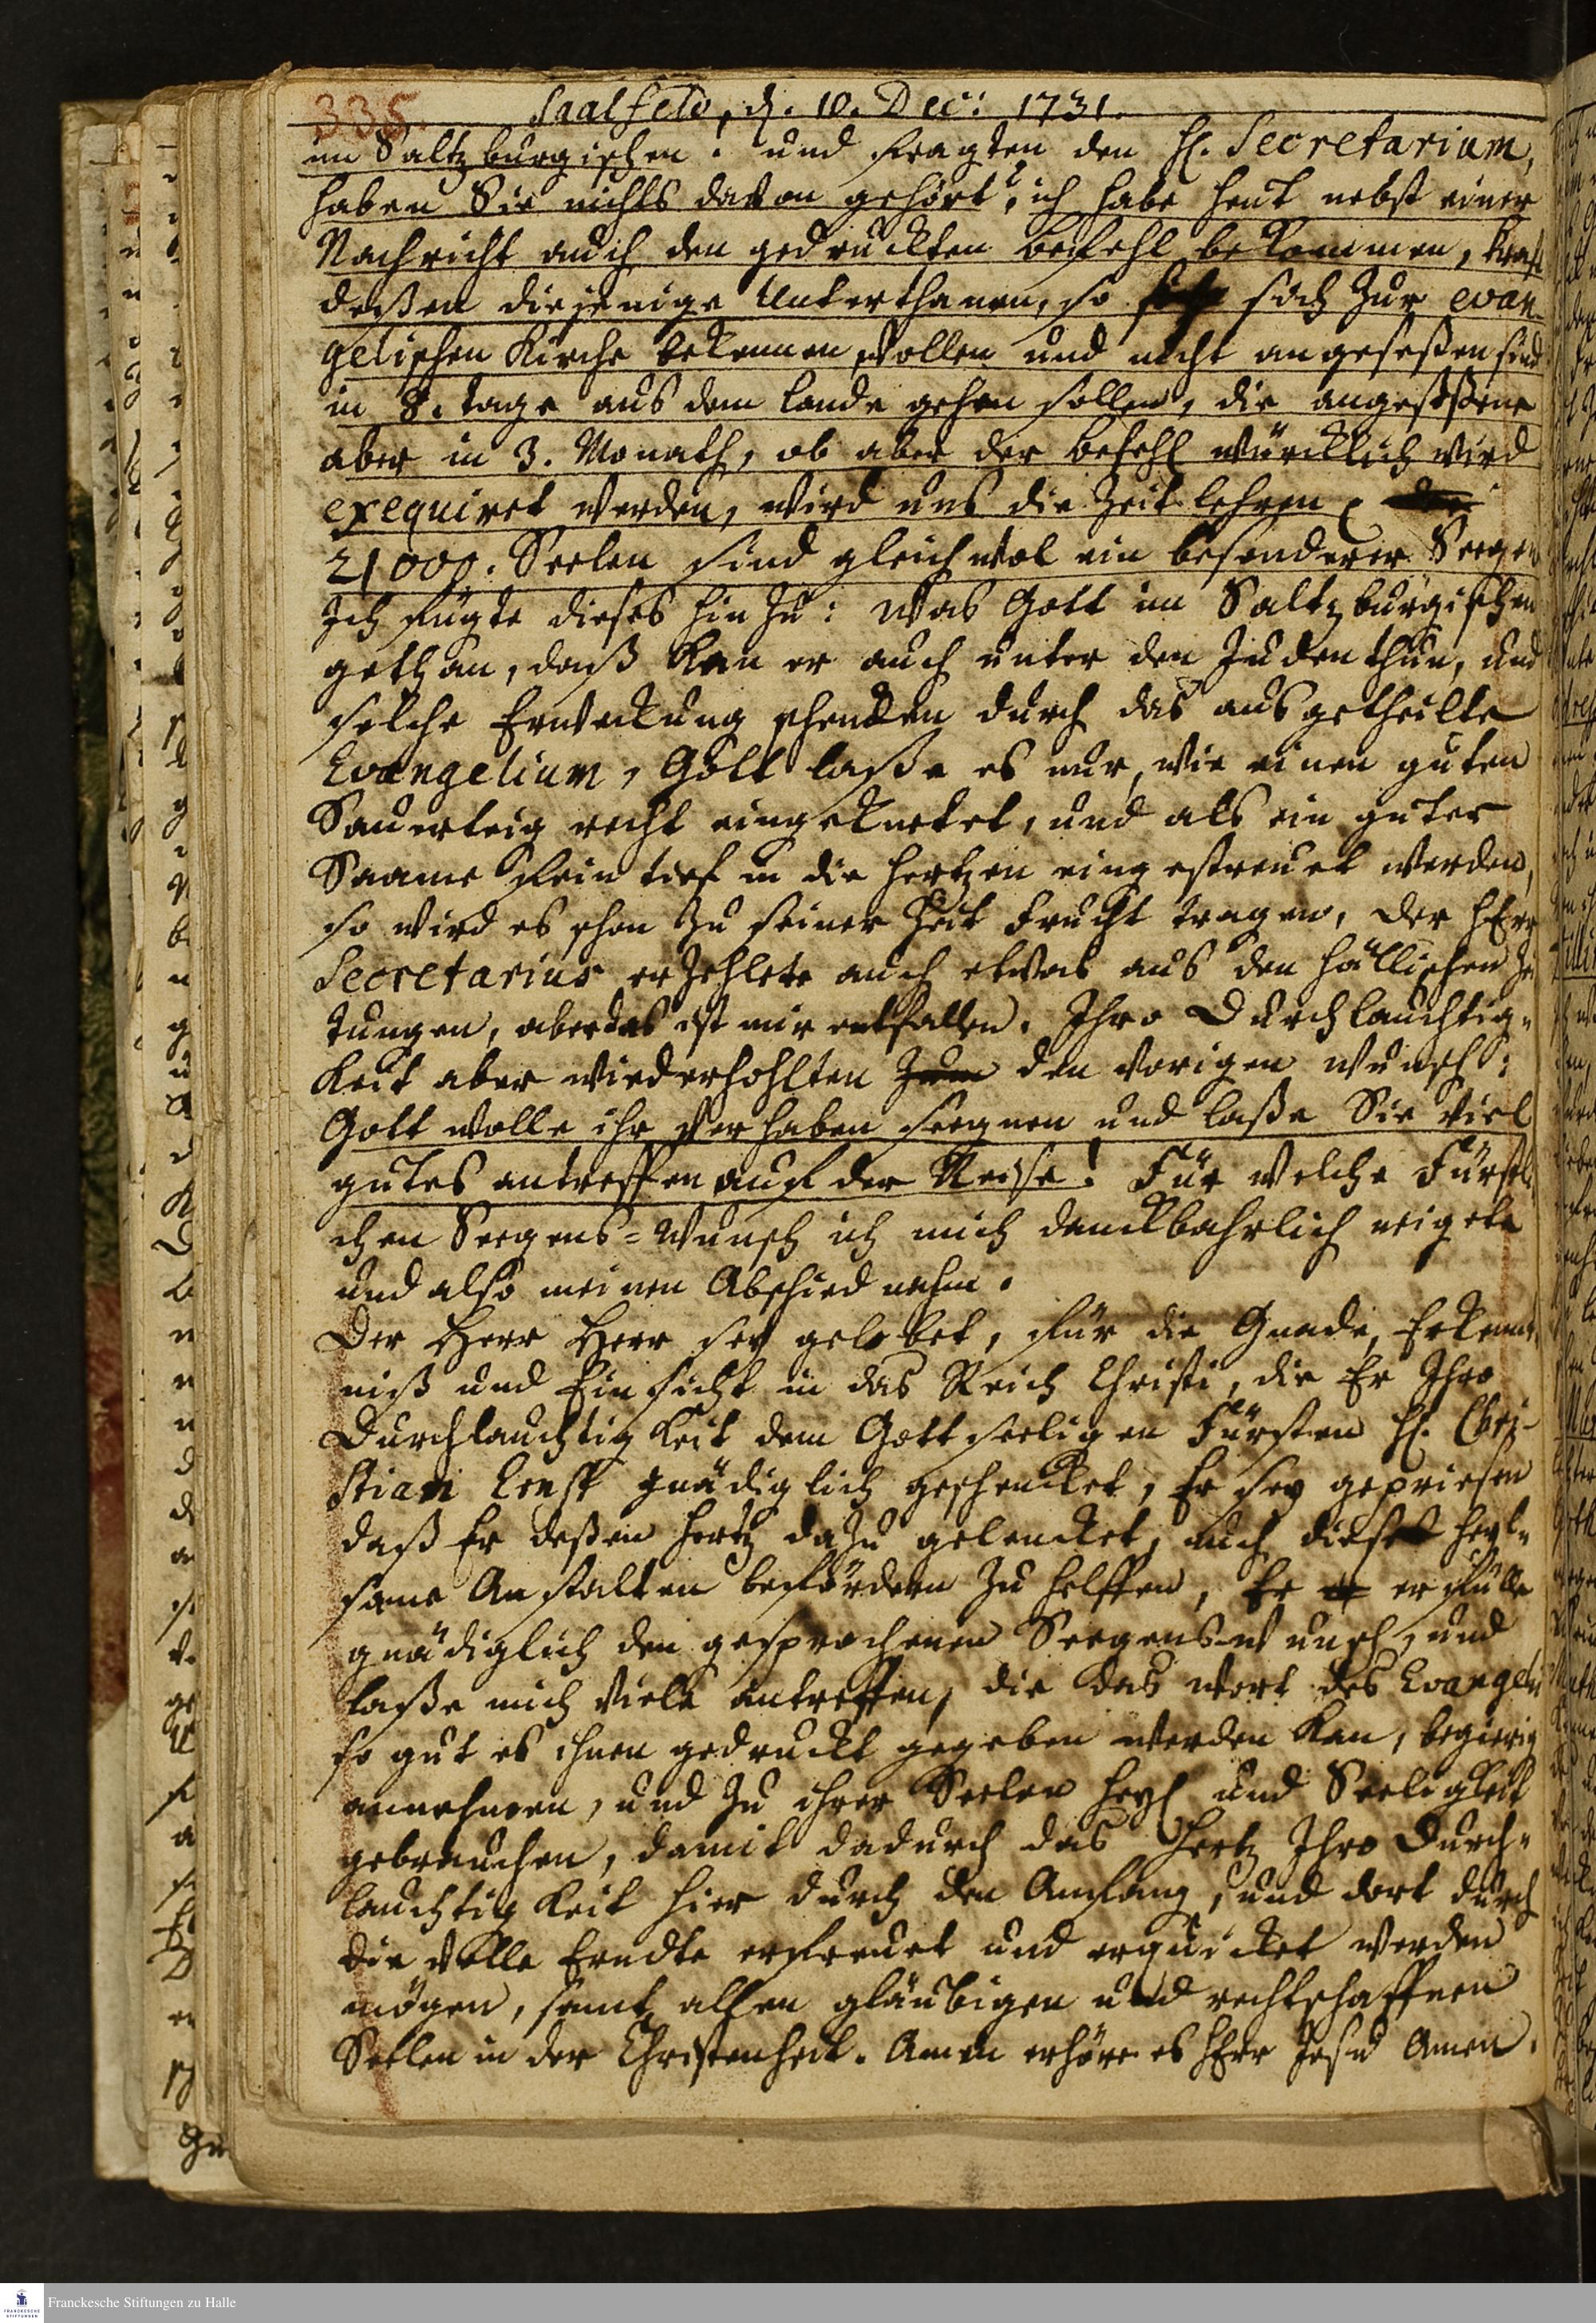 335.
Saalfeld, d. 10. Dec: 1731.
im Saltzburgischen. und fragten den H. Secretarium,
haben Sie nichts davon gehört? ich habe heut nebst einer
Nachricht auch den gedruckten befehl bekommen, kraft
deßen diejenige Unterthanen, so sich zur evan-
gelischen Kirche bekennen wollen und nicht angeseßen sind
in 8. tage aus dem lande gehen sollen, die angeseßene
aber in 3. Monath, ob aber der befehl würcklich wird
exequiret werden, wird uns die Zeit lehren,
21000. Seelen sind gleichwol ein besonderer Seegen
Ich fügte dieses hinzu: Was Gott im Saltzburgischen
gethan, daß kan er auch unter den Juden thun, und
solche Erweckung schencken durch das ausgetheilte
Evangelium, Gott laße es nur, wie einen guten
Sauerteig recht eingeknetet, und als ein guter
Saame fein tief in die hertzen eingestreuet werden,
so wird es schon zu seiner Zeit frucht tragen, der HErr
Secretarius erzehlete auch etwas aus den hällischen Zei
tungen, aber das ist mir entfallen. Ihro Durchlauchtig-
keit aber wiederhohlten den vorigen wunsch:
Gott wolle ihr Verhaben seegnen und laße Sie viel
gutes antreffen auf der Reise! Für welche Fürstli
chen Seegens-Wunsch ich mich danckbahrlich neigete
und also meinen Abschied nahm.
Der Herr Herr sey gelobet, für die Gnade, Erkennt
niß und Einsicht in das Reich Christi, die Er Ihro
Durchlauchtigkeit dem Gottseeligen Fürsten H. Chri-
stian Ernst gnädiglich geschencket, Er sey gepriesen
daß Er deßen hertz dazu gelencket, auch diese heyl-
same Anstalten befördern zu helffen, Er erfülle
gnädiglich den gesprochenen Seegens-wunsch, und
laße mich viele antreffen, die das wort des Evangelii
so gut es ihnen gedruckt gegeben werden kan, begierig
annehmen, und zu ihrer Seelen heyl und Seeligkeit
gebrauchen, damit dadurch das Hertz Ihro Durch-
lauchtigkeit hier durch den Anfang, und dort durch
die volle Erndte erfreuet und erquicket werden
mögen, samt allen gläubigen und rechtschaffnen
Seelen in der Christenheit. Amen erhöre es HErr Jesu Amen.
Franckesche Stiftungen zu Halle